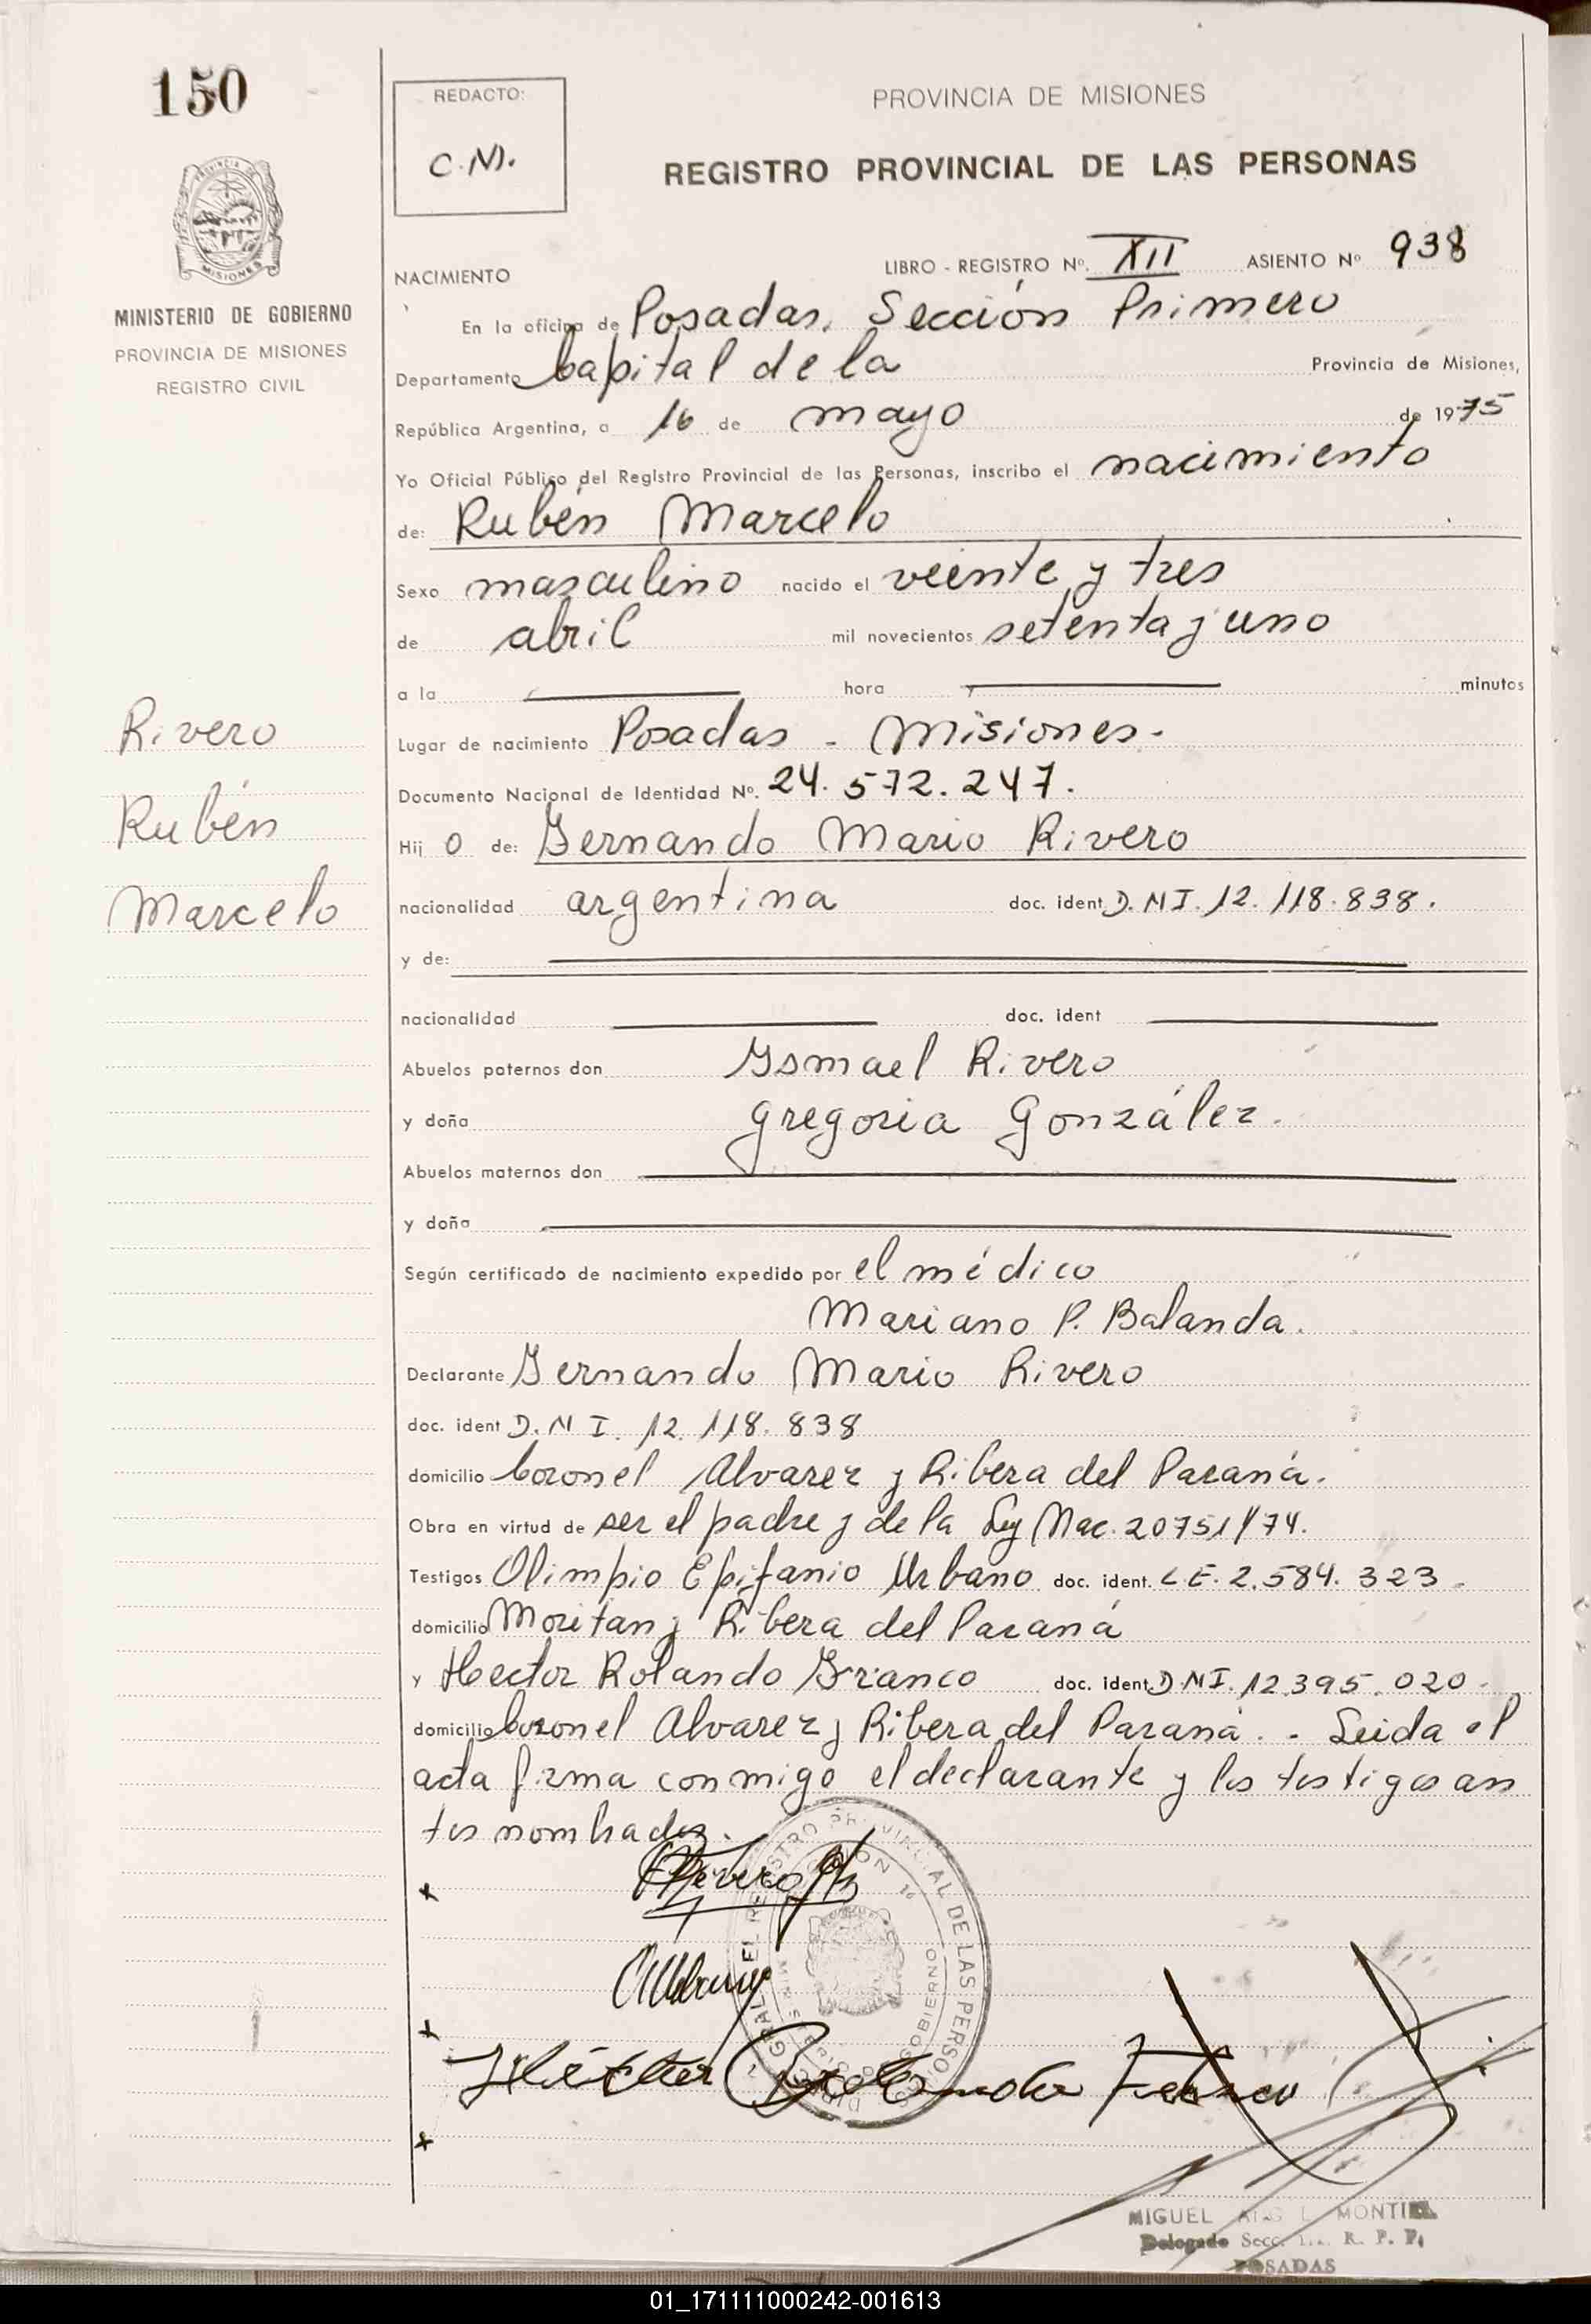 150
REDACTO:
C.N.
PROVINCIA DE MISIONES
REGISTRO PROVINCIAL DE LAS PERSONAS
MISIONES
MINISTERIO DE GOBIERNO
PROVINCIA DE MISIONES
REGISTRO CIVIL
LIBRO - REGISTRO Nº. XII ASIENTO Nº 938
NACIMIENTO
En la oficina de Posadas, Sección Primero
Departamento Capital de la Provincia de Misiones,
República Argentina, a 16 de mayo de 1975
Yo Oficial Público del Registro Provincial de las Personas, inscribo el nacimiento
de: Rubén Marcelo
Sexo masculino nacido el veinte y tres
de abril mil novecientos setenta y uno
a la hora y minutos
Rivero
Rubén
Marcelo
Lugar de nacimiento Posadas - Misiones.
Documento Nacional de Identidad Nº. 24.572.247.
Hij o de: Fernando Mario Rivero
nacionalidad argentina doc. ident D.N.I. 12.118.838.
y de:
nacionalidad doc. ident
Abuelos paternos don Ysmael Rivero
y doña Gregoria González.
Abuelos maternos don
y doña
Según certificado de nacimiento expedido por el médico
Mariano P. Balanda.
Declarante Fernando Mario Rivero
doc. ident D.N.I. 12.118.838
domicilio Coronel Alvarez y Ribera del Paraná.
Obra en virtud de ser el padre y de la Ley Nac. 20751/74.
Testigos Olimpio Epifanio Urbano doc. ident. L.E. 2.584.323.
domicilio Moritan y Ribera del Paraná
y Hector Rolando Franco doc. ident D.N.I. 12.395.020.
domicilio Coronel Alvarez y Ribera del Paraná. - Leida el
acta firma conmigo el declarante y los testigos an
tes nombrados.
Héctor Rolando Franco
MIGUEL MONTIEL
Delegado Secc. R. P. P.
POSADAS
01_171111000242-001613